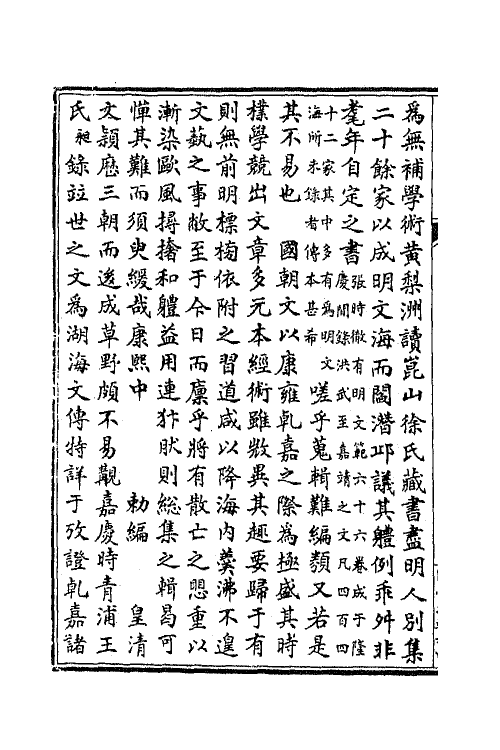 爲無補學術黃梨洲讀崑山徐氏藏書盡明人別集
二十餘家以成明文海而閻潛邱議其體例乖舛非
耄年自定之書張時徹有明文範六十六卷成于隆
慶間錄洪武至嘉靖之文凡四百四
十二家其中多有爲明文
海所未錄者傳本甚希嗟乎蒐輯難編纇又若是
其不易也　國朝文以康雍乹嘉之際爲極盛其時
樸學競出文章多元本經術雖敚異其趣要歸于有
則無前明標榜依附之習道咸以降海内羹沸不遑
文蓺之事敝至于今日而廩乎將有散亡之思重以
漸染歐風撏撦和軆益用連犿肰則総集之輯曷可
憚其難而須臾緩哉康熙中　　　勅編　　皇清
文穎歴三朝而逡成草野頗不易觀嘉慶時青浦王
氏昶錄竝世之文爲湖海文傳特詳于攷證乹嘉諸